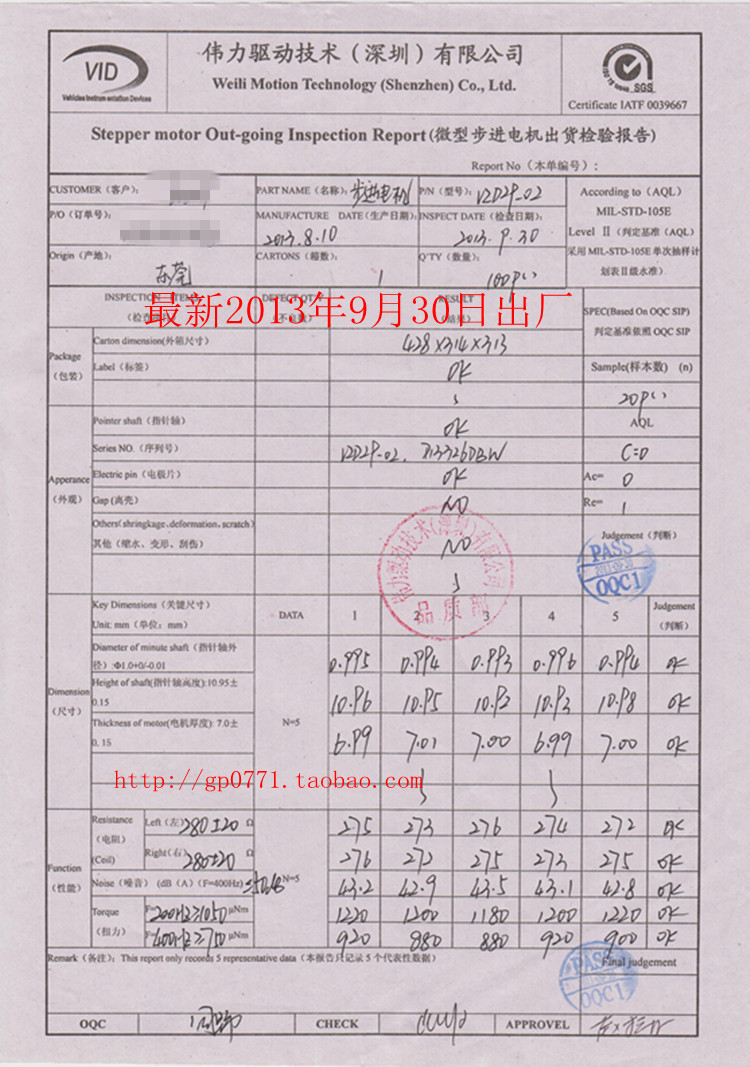 VID
Vehicles Instrumentation Devices
伟力驱动技术（深圳）有限公司
Weili Motion Technology (Shenzhen) Co., Ltd.
SGS
Certificate IATF 0039667
Stepper motor Out-going Inspection Report(微型步进电机出货检验报告)
Report No（本单编号）:
CUSTOMER（客户）:
PART NAME（名称）: 步进电机
P/N（型号）: VID29-02
According to（AQL）
MIL-STD-105E
Level Ⅱ（判定基准（AQL）
采用 MIL-STD-105E 单次抽样计
划表Ⅱ级水准）
P/O（订单号）:
MANUFACTURE DATE(生产日期):
2013.8.10
INSPECT DATE（检查日期）:
2013.9.30
Origin（产地）:
东莞
CARTONS（箱数）:
1
Q'TY（数量）:
INSPECTION ITEMS
DEFECT QTY
RESULT
最新2013年9月30日出厂
SPEC(Based On OQC SIP)
判定基准依照 OQC SIP
Package
（包装）
Carton dimension(外箱尺寸)
428×314×313
Label（标签）
OK
Sample(样本数) (n)
AQL
Apperance
（外观）
Pointer shaft（指针轴）
OK
Series NO.（序列号）
VID29-02.
C=0
Electric pin（电极片）
OK
Ac= 0
Gap (离壳)
NO
Re= 1
Others( shringkage、deformation、scratch)
其他（缩水、变形、刮伤）
NO
Judgement（判断）
伟力驱动技术(深圳)有限公司
品质部
PASS
OQC1
Dimension
（尺寸）
Key Dimensions（关键尺寸）
Unit: mm（单位：mm）
DATA 1 2 3 4 5
Judgement
（判断）
Diameter of minute shaft（指针轴外
径）:Φ1.0+0/-0.01
0.995 0.994 0.993 0.996 0.994 OK
Height of shaft(指针轴高度):10.95±
0.15
10.96 10.95 10.92 10.93 10.98 OK
Thickness of motor(电机厚度): 7.0±
0.15
N=5
6.99 7.01 7.00 6.99 7.00 OK
http://gp0771.taobao.com
Function
（性能）
Resistance
（电阻）
(Coil)
Left（左） 280±20 Ω
275 273 276 274 272 OK
Right（右） 280±20 Ω
276 272 275 273 275 OK
Noise（噪音）(dB（A）(F=400Hz)
N=5
43.2 42.9 43.5 43.1 42.8 OK
Torque
（扭力）
F=200Hz≥1050 μNm
1220 1200 1180 1200 1220 OK
F=400Hz≥750 μNm
920 880 880 920 900 OK
Remark（备注）: This report only records 5 representative data（本报告只记录 5 个代表性数据）
Final judgement
PASS
OQC1
OQC
CHECK
APPROVEL